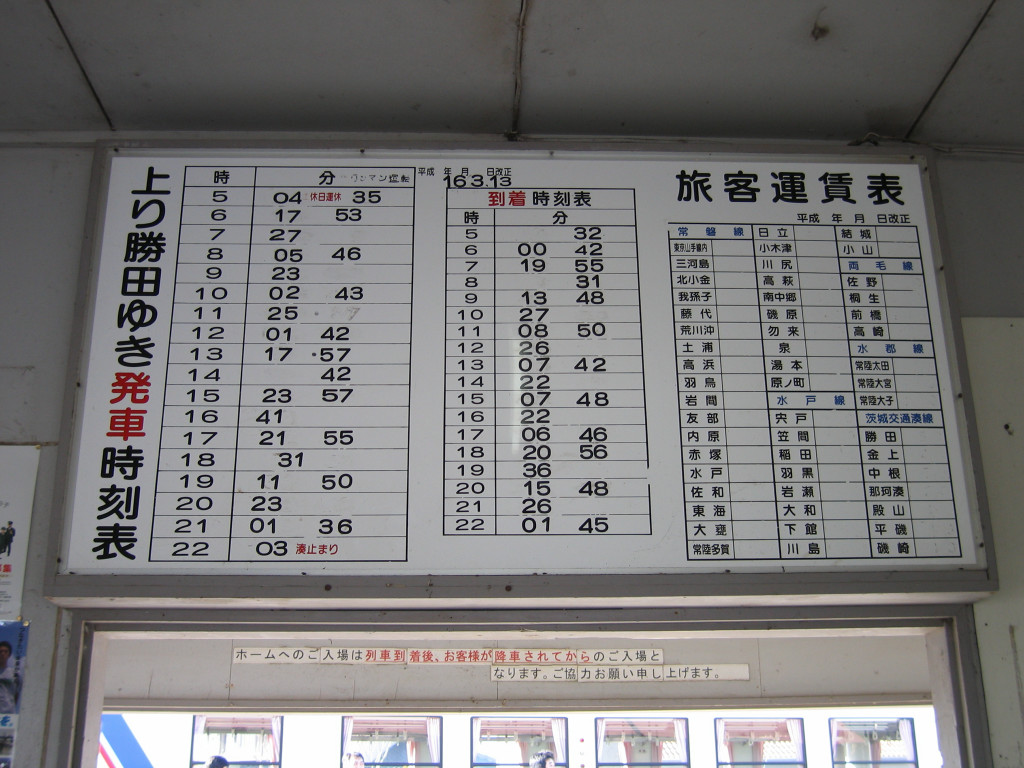 上り勝田ゆき発車時刻表
時 分 ワンマン運転
5 04 休日運休 35
6 17 53
7 27
8 05 46
9 23
10 02 43
11 25
12 01 42
13 17 57
14 42
15 23 57
16 41
17 21 55
18 31
19 11 50
20 23
21 01 36
22 03 湊止まり
平成 年 月 日改正
16.3.13
到着時刻表
時 分
5 32
6 00 42
7 19 55
8 31
9 13 48
10 27
11 08 50
12 26
13 07 42
14 22
15 07 48
16 22
17 06 46
18 20 56
19 36
20 15 48
21 26
22 01 45
旅客運賃表
平成 年 月 日改正
常磐線 日立 結城
東京山手線内 小木津 小山
三河島 川尻 両毛線
北小金 高萩 佐野
我孫子 南中郷 桐生
藤代 磯原 前橋
荒川沖 勿来 高崎
土浦 泉 水郡線
高浜 湯本 常陸太田
羽鳥 原ノ町 常陸大宮
岩間 水戸線 常陸大子
友部 宍戸 茨城交通湊線
内原 笠間 勝田
赤塚 稲田 金上
水戸 羽黒 中根
佐和 岩瀬 那珂湊
東海 大和 殿山
大甕 下館 平磯
常陸多賀 川島 磯崎
ホームへのご入場は列車到着後、お客様が降車されてからのご入場と
なります。ご協力お願い申し上げます。